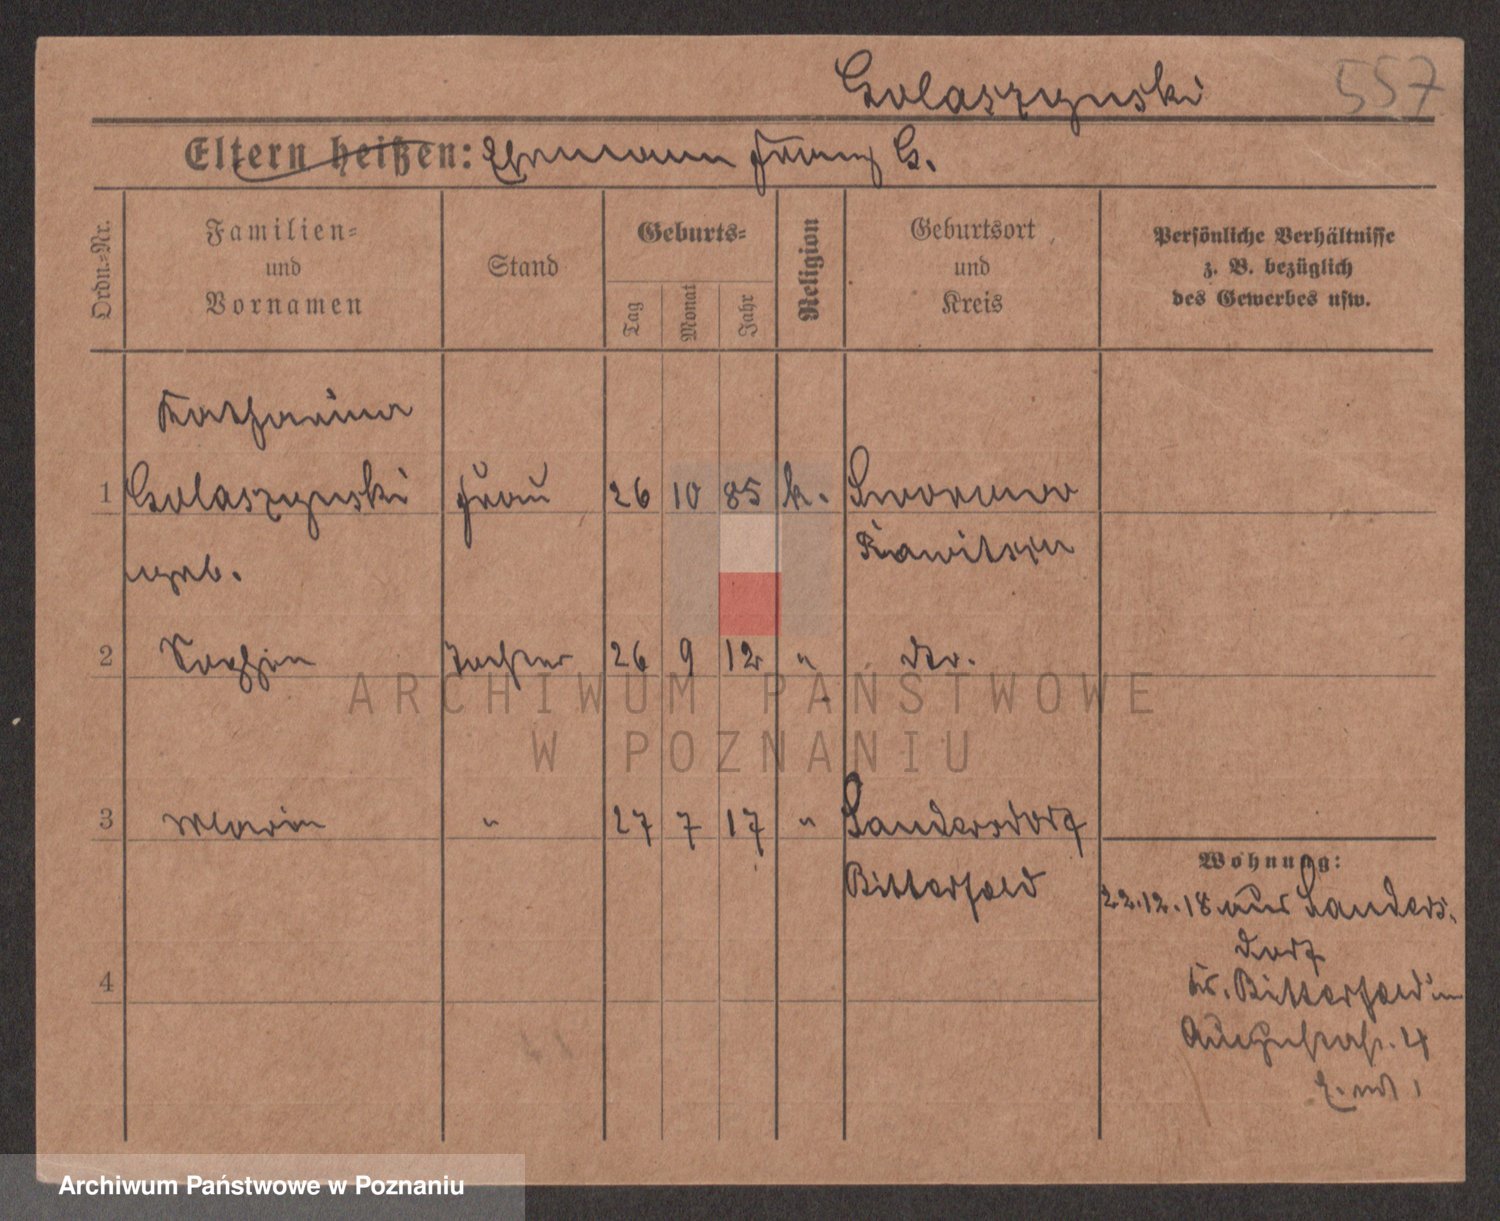 Golaszynski 557
Eltern heißen: Ehemann Franz G.
Ordn.-Nr.
Familien-
und
Vornamen
Stand
Geburts-
Tag
Monat
Jahr
Religion
Geburtsort
und
Kreis
Persönliche Verhältnisse
z. B. bezüglich
des Gewerbes usw.
Katharina
1 Golaszynski Frau 26 10 85 k.
Rawitsch
geb.
2 Sophie Tochter 26 9 12 " dto.
ARCHIWUM PAŃSTWOWE
W POZNANIU
3 Marie " 27 7 17 " Sandersdorf
Wohnung:
Bitterfeld
22.12.18 aus Sanders-
dorf
4
Kr. Bitterfeld
4
Archiwum Państwowe w Poznaniu